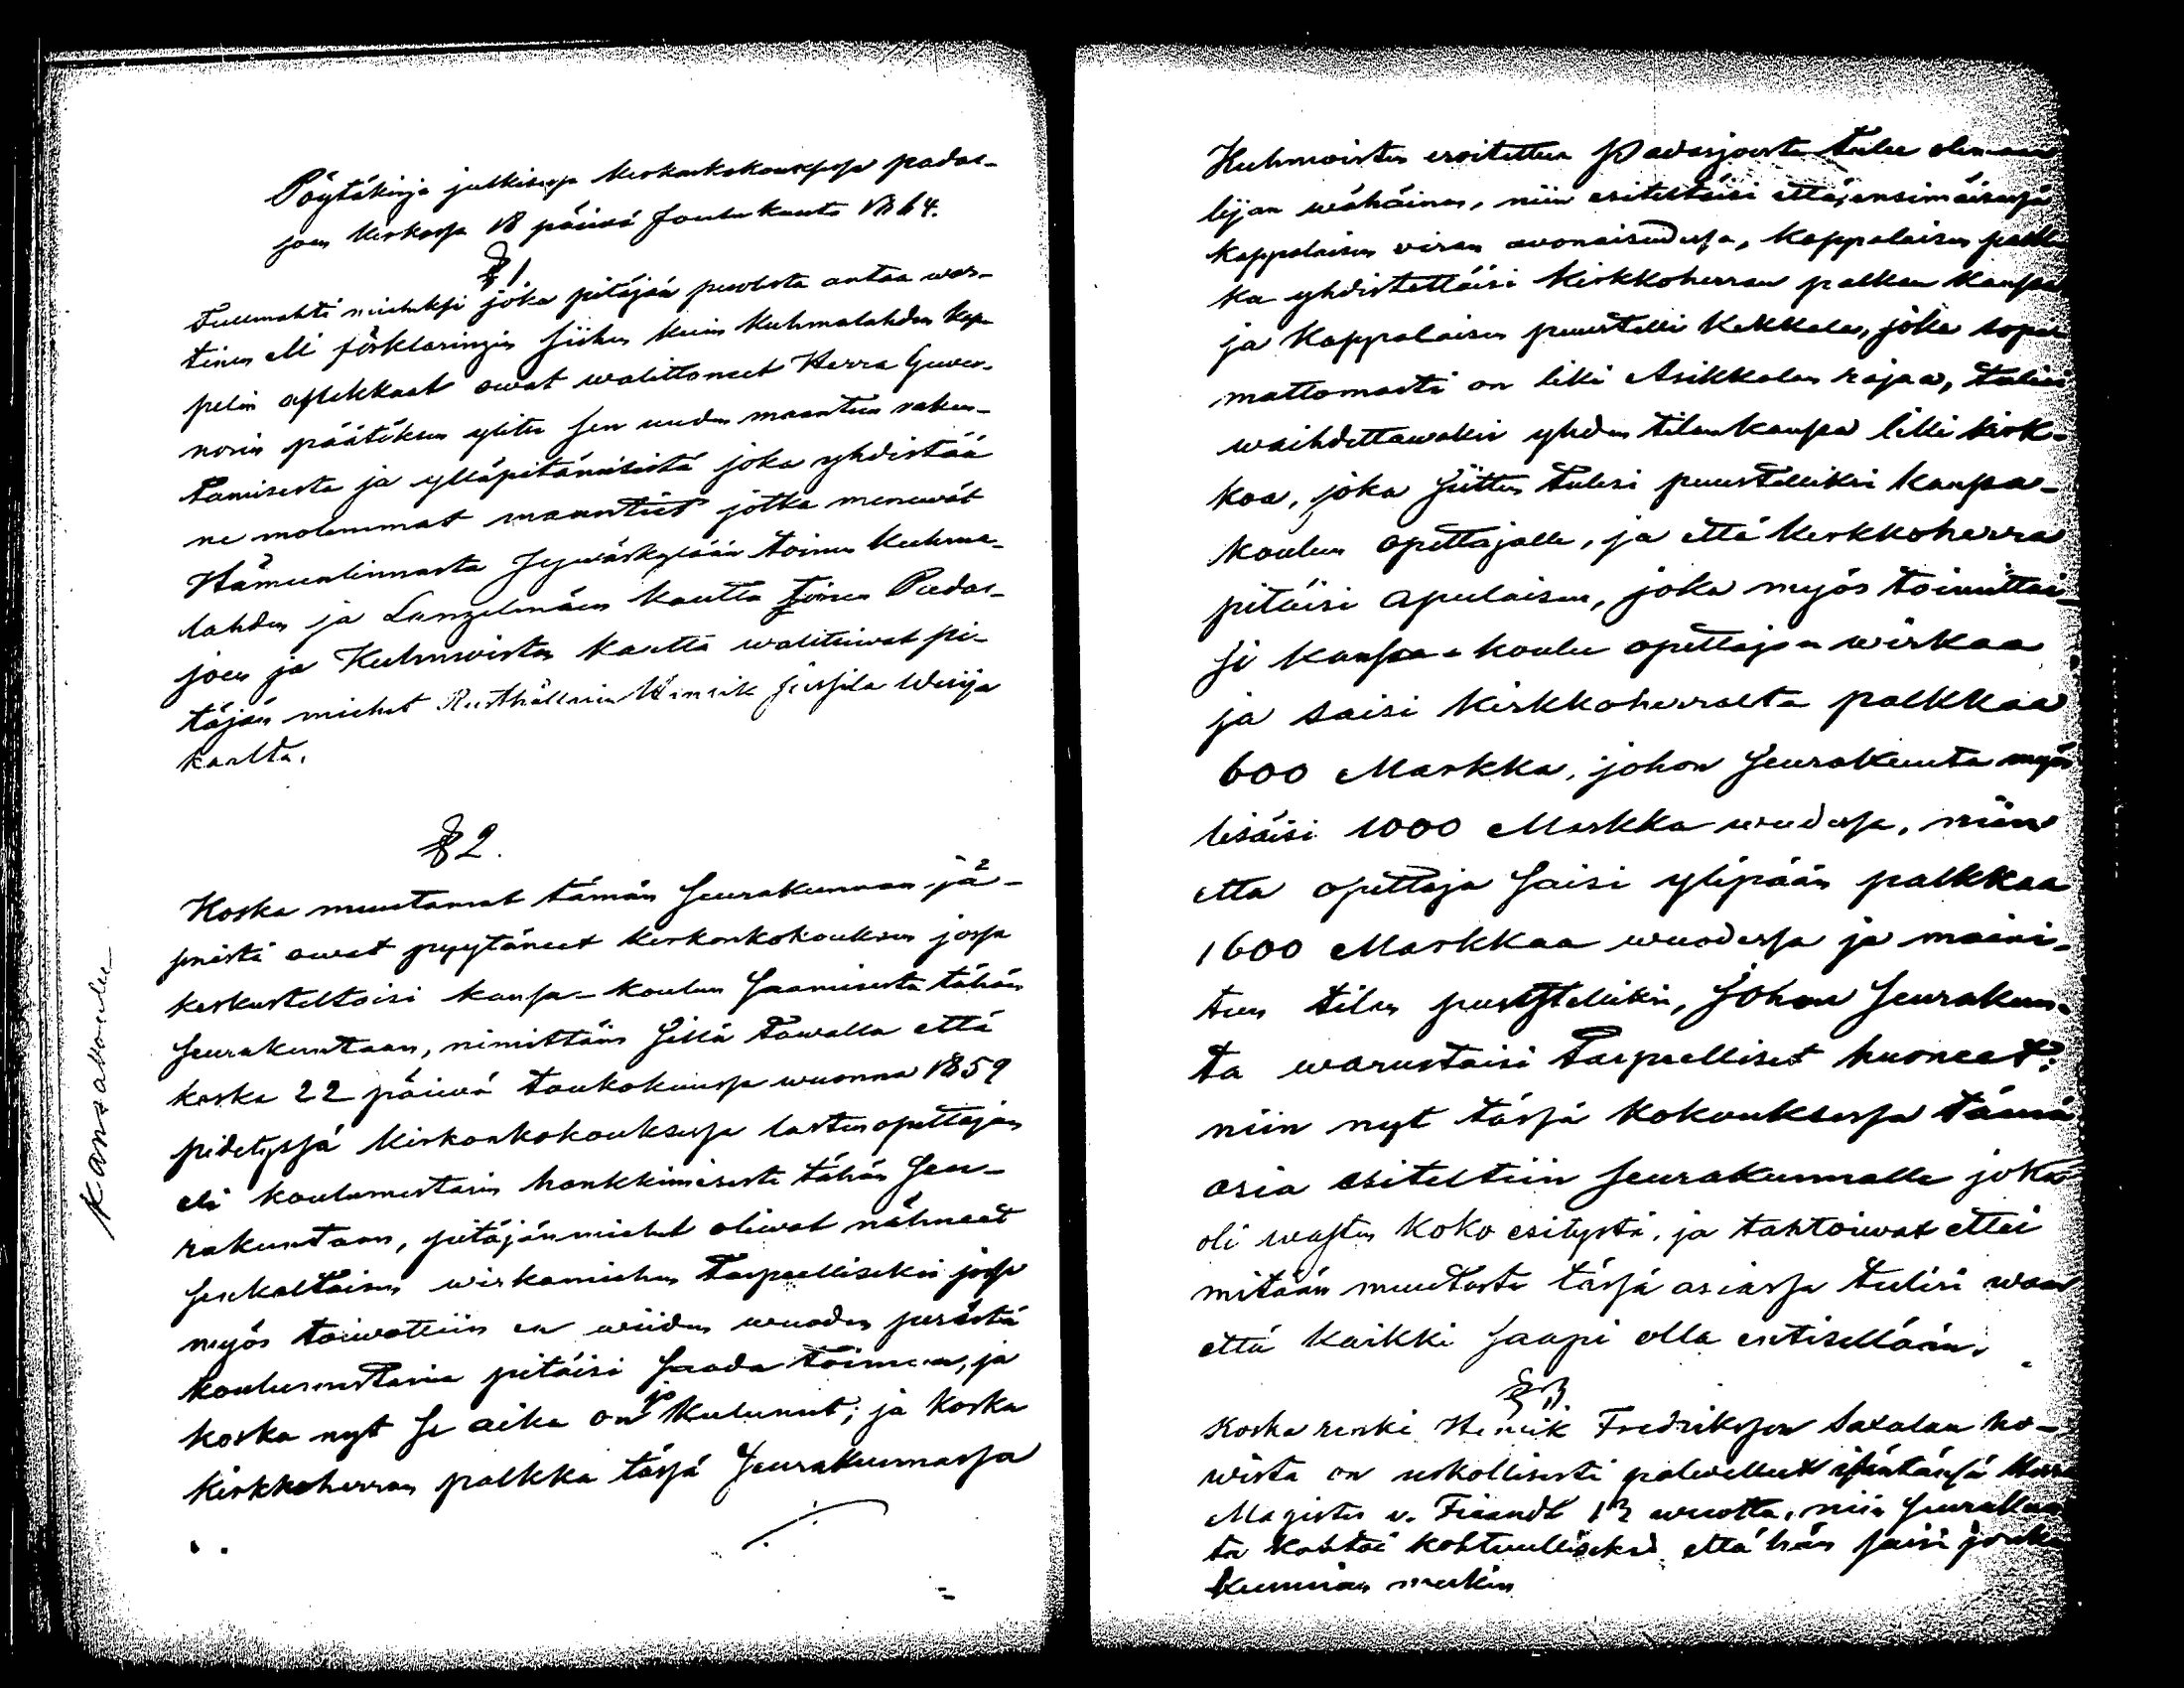 Pöytäkirja julkisessa kirkonkokouxessa padas-
joen kirkossa 18 päivä Joulukuuta 1864.
§ 1.
Fullmahti mieheksi joka pitäjän puolesta antaa was-
tinen eli förklaringin siihen kuin Kuhmalahden kap-
pelin asukkaat owat walittaneet Herra Guver-
norin päätöksen ylitse sen uuden maantien raken-
tamisesta ja ylläpitämisestä joka yhdistää
ne molemmat maantiet jotka menewät
Hämeenlinnasta Jywäskylään toinen Kuhma-
lahden ja Längelmäen kautta toinen Padas-
joen ja Kuhmoisten kautta walitsiwat pi-
täjän miehet Rusthållarin Henrik Jussila Wesija
kaulta.
§ 2.
Koska muutamat tämän seurakunnan jä-
senistä owat pyytäneet kirkonkokouksen jossa
keskusteltaisi kansa-koulun saamisesta tähän
seurakuntaan, nimittäin sillä tawalla että
koska 22 päiwä toukokuussa wuonna 1859
pidetyssä kirkonkokouksessa lastenopettajan
eli koulumestarin hankkimisesta tähän seu-
rakuntaan, pitäjänmiehet oliwat nähneet
senkaltaisen wirkamiehen tarpeelliseksi jossa
myös toiwottiin en wiiden wuoden perästä
koulumestaria pitäisi saada toimeen, ja
koska nyt se aika on jo kulunut; ja koska
kirkkoherran palkka tässä seurakunnassa
Kansakoulu
Kuhmoisten eroitettua Padasjoesta tulee oleman
lijan wähäinen, niin esiteltäisi että, ensimäisessä
kappalaisen viran avonaisuudessa, kappalaisen palk-
ka yhdistettäisi kirkkoherran palkan kanssa
ja kappalaisen puustelli Kekkala, joka sopi-
mattomasti on liki Asikkalan rajaa, tulisi
waihdettawaksi yhden tilan kanssa liki kirk-
koa, joka sitten tulisi puustelliksi kansa-
koulun opettajalle, ja että kirkkoherra
pitäisi apulaisen, joka myös toimittai-
si kansa-koulu opettajan wirkaa
ja saisi kirkkoherralta palkkaa
600 Markka, johon seurakunta myös
lisäisi 1000 Markka wuodessa, niin
etta opettaja saisi ylipään palkkaa
1600 Markkaa wuodessa ja maini-
tun tilan puustelliksi, johon seurakun-
ta warustaisi tarpeelliset huoneet:
niin nyt tässä kokouksessa tämä
asia esiteltiin seurakunnalle joka
oli wasten koko esitystä, ja tahtoiwat ettei
mitään muutosta tässä asiassa tulisi waan
että kaikki saapi olla entisellään.
§ 3.
Koska renki Henrik Fredriksson Saxalan ho-
wista on uskollisesti palwellut isäntäänsä Herra
Magister v. Fieandt 13 wuotta, niin seurakun-
ta katsoi kohtuulliseksi että hän saisi jonkun
kunnian merkin